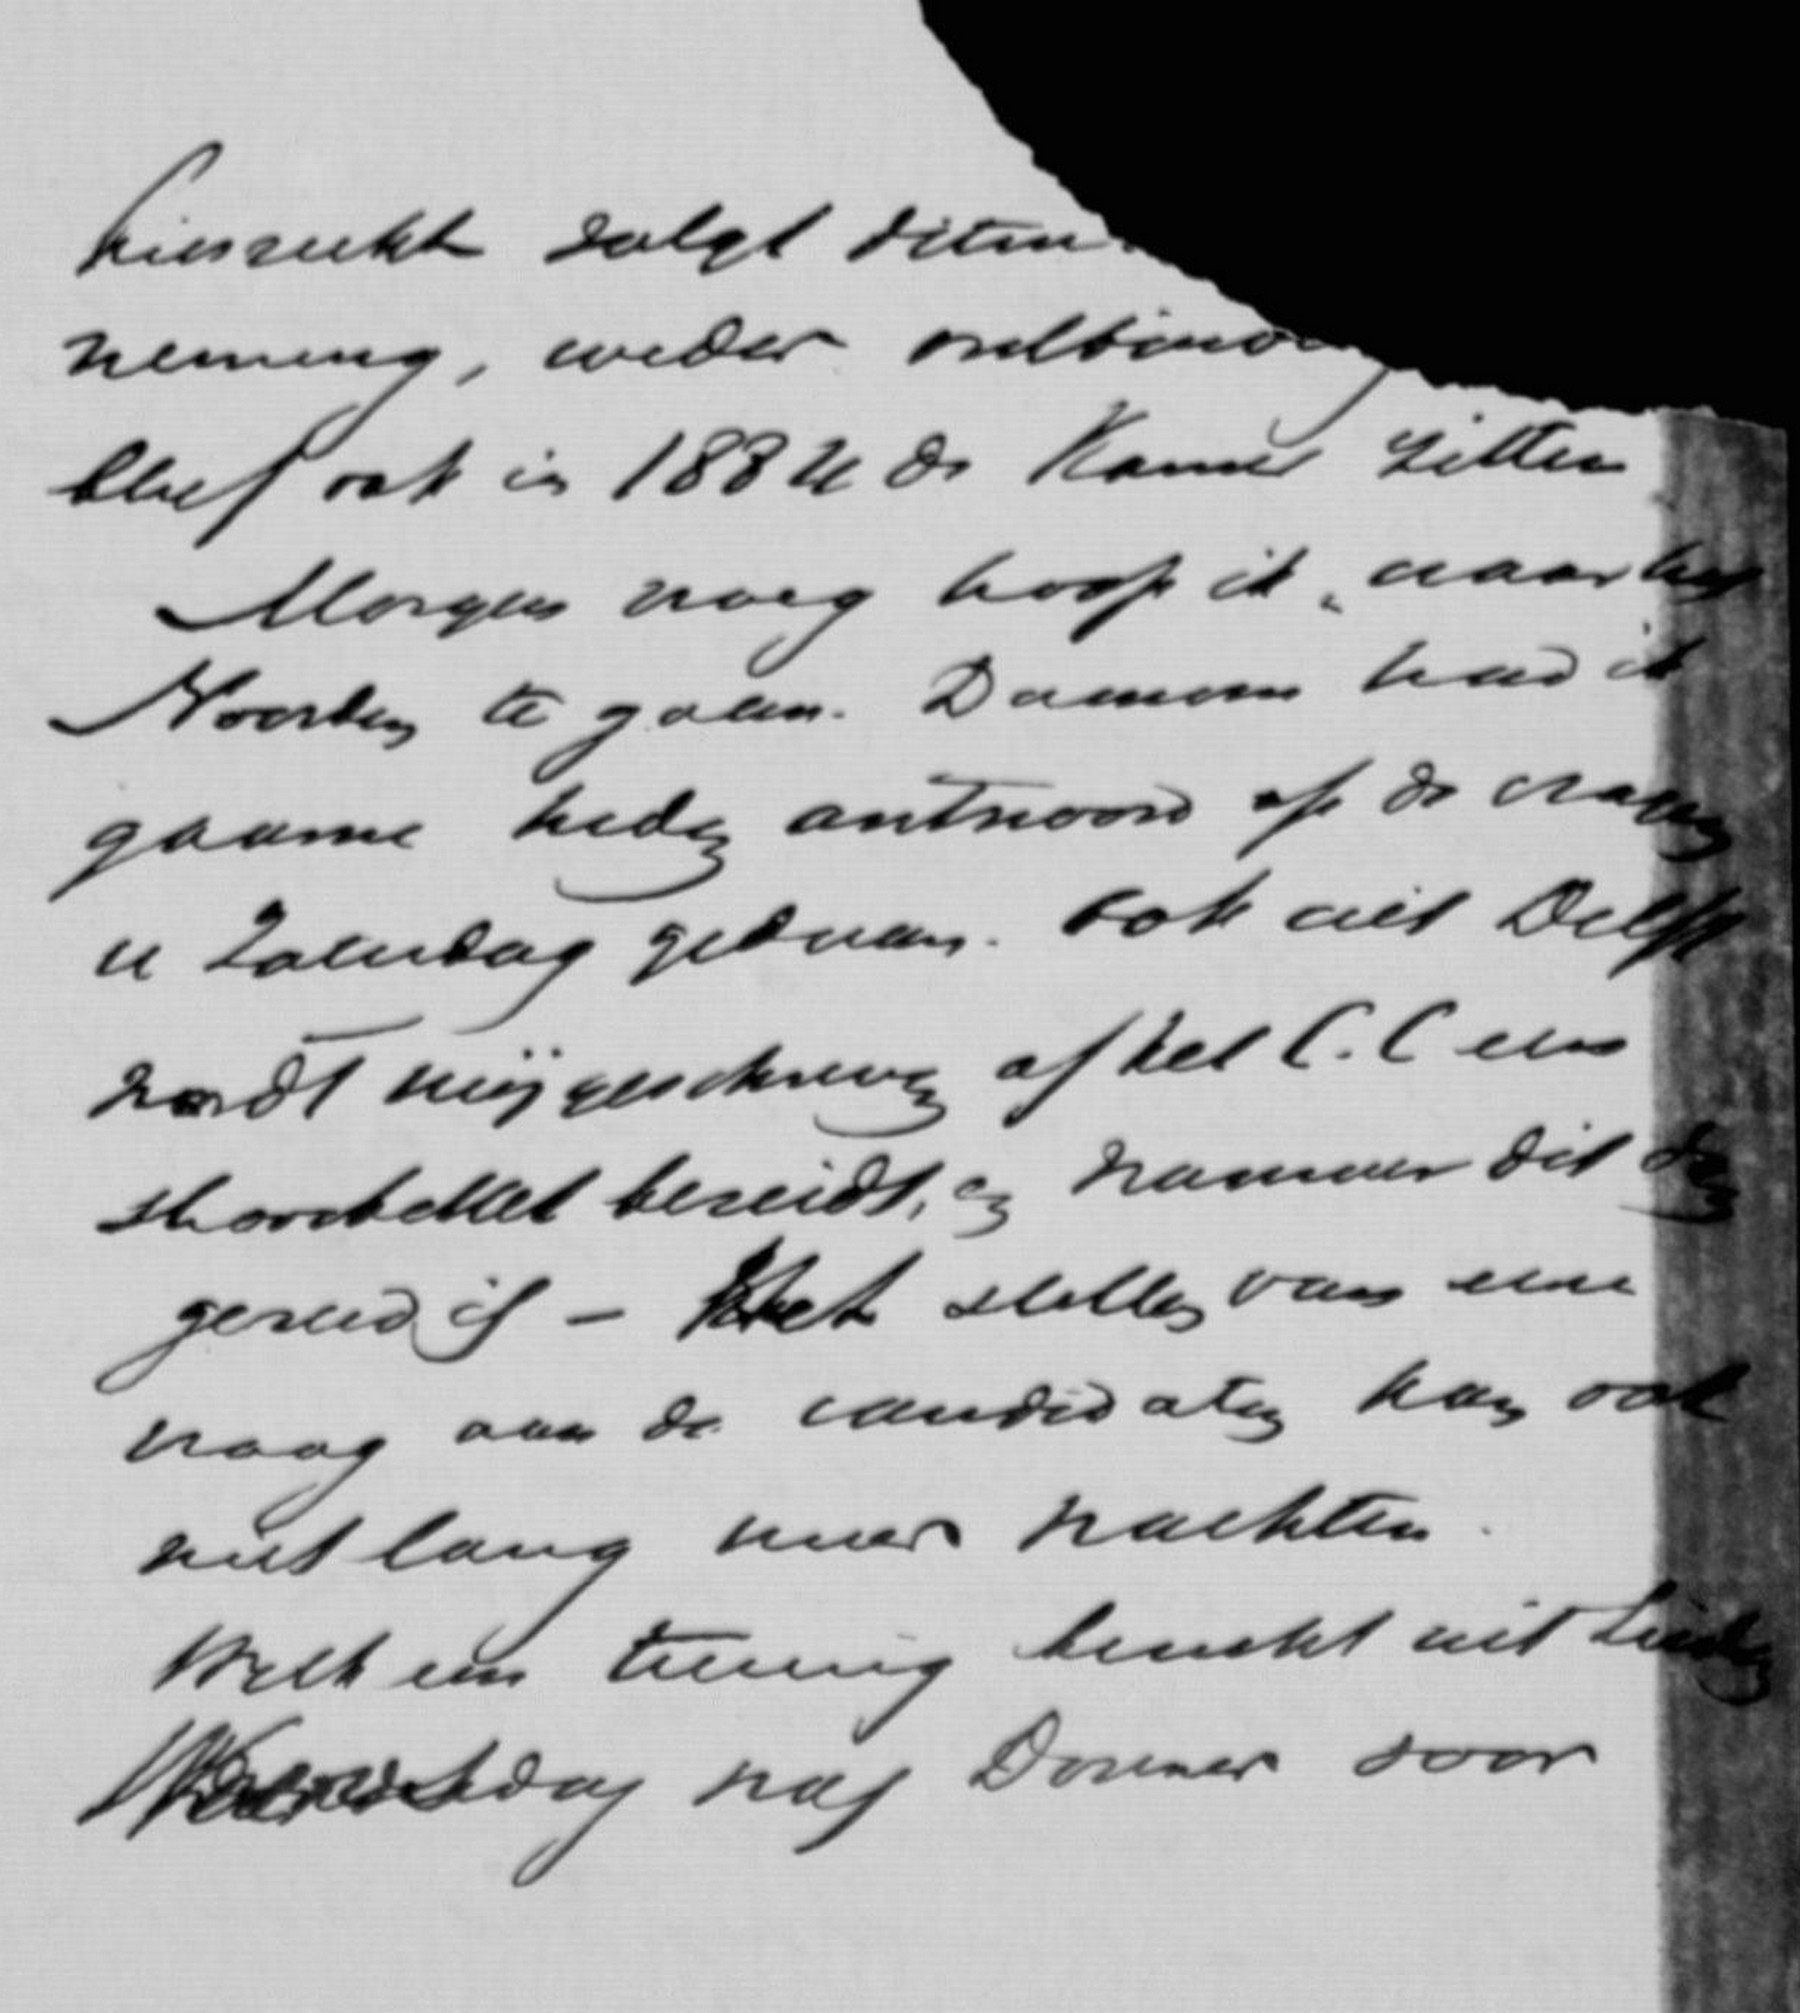 kiesrecht volgt
neming, weder ontbind
bleef ook in 1884 de Kamer zitten
Morgen vroeg hoop ik naar het
Noorden te gaan. Daarom had ik
gaarne heden antwoord op de vragen
u Zaturdag gedaan. Ook uit Delft
wordt mij geschreven of het C.C. een
strooibillet bereidt, en wanneer dit dan
gereed is – Het stellen van eene
vraag aan de candidaten kan ook
niet lang meer wachten.
Welk een treurig bericht uit Leiden
dag nog Donner voor